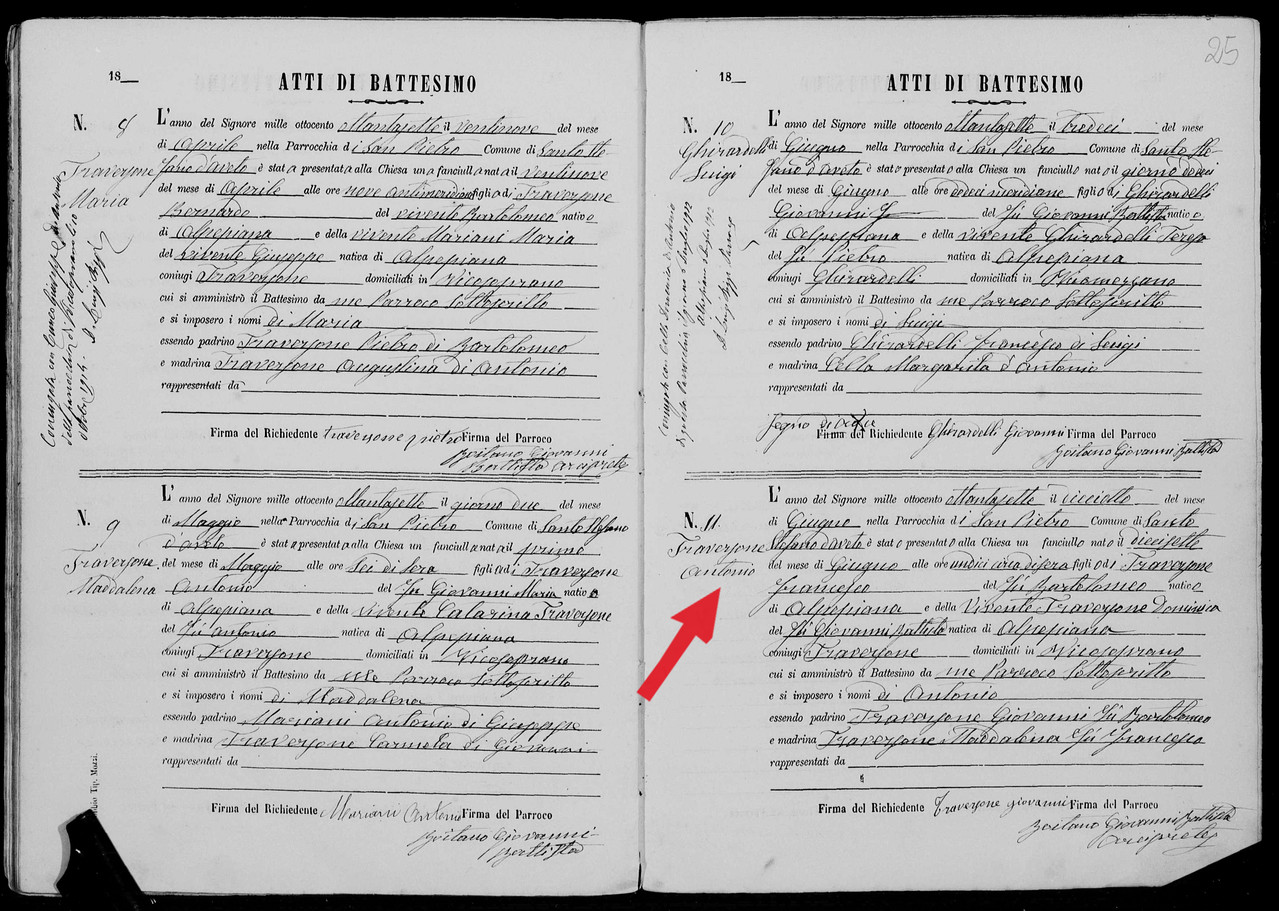 25
18__
ATTI DI BATTESIMO
N. 8
Traversone
Maria
L'anno del Signore mille ottocento ottantasette il ventinove del mese
di Aprile nella Parrocchia di San Pietro Comune di Santo Ste
fano d'aveto è stata presentata alla Chiesa una fanciulla nata il ventinove
del mese di Aprile alle ore nove antimeridiane figlia di Traversone
Bernardo del vivente Bartolomeo nativo
di Alpepiana e della vivente Mariani Maria
del vivente Giuseppe nativa di Alpepiana
coniugi Traversone domiciliati in Vicosoprano
cui si amministrò il Battesimo da me Parroco sottoscritto
e si imposero i nomi di Maria
essendo padrino Traversone Pietro di Bartolomeo
e madrina Traversone Augustina di Antonio
rappresentati da
Firma del Richiedente traversone pietro Firma del Parroco
Boitano Giovanni
Battista arciprete
N. 9
Traversone
Maddalena
L'anno del Signore mille ottocento ottantasette il giorno due del mese
di Maggio nella Parrocchia di San Pietro Comune di Santo Stefano
d'aveto è stata presentata alla Chiesa un fanciulla nata il primo
del mese di Maggio alle ore sei di sera figlia di Traversone
Antonio del fù Giovanni Maria nativo
di Alpepiana e della vivente Catarina Traversone
del fù Antonio nativa di Alpepiana
coniugi Traversone domiciliati in Vicosoprano
cui si amministrò il Battesimo da me Parroco sottoscritto
e si imposero i nomi di Maddalena
essendo padrino Mariani Antonio di Giuseppe
e madrina Traversone Carmela di Giovanni
rappresentati da
Firma del Richiedente Mariani Antonio Firma del Parroco
Boitano Giovanni
Battista
Tip. Mozzi.
18__
ATTI DI BATTESIMO
N. 10
Ghirardelli
Luigi
L'anno del Signore mille ottocento ottantasette il tredeci del mese
di Giugno nella Parrocchia di San Pietro Comune di Santo Ste
fano d'aveto è stato presentato alla Chiesa un fanciullo nato il giorno dodeci
del mese di Giugno alle ore dodeci meridiane figlio di Ghirardelli
Giovanni del fù Giovanni Battista nativo
di Alpepiana e della vivente Ghirardelli Teresa
del fù Pietro nativa di Alpepiana
coniugi Ghirardelli domiciliati in
cui si amministrò il Battesimo da me Parroco sottoscritto
e si imposero i nomi di Luigi
essendo padrino Ghirardelli Francesco di Luigi
e madrina Cella Margarita d'Antonio
rappresentati da
segno di
Firma del Richiedente Ghirardelli Giovanni Firma del Parroco
Boitano Giovanni Battista
N. 11
Traversone
Antonio
L'anno del Signore mille ottocento ottantasette il dieciotto del mese
di Giugno nella Parrocchia di San Pietro Comune di Santo
Stefano d'aveto è stato presentato alla Chiesa un fanciullo nato il diecisette
del mese di Giugno alle ore undici circa di sera figlio di Traversone
Francesco del fù Bartolomeo nativo
di Alpepiana e della vivente Traversone Dominica
del fù Giovanni Battista nativa di Alpepiana
coniugi Traversone domiciliati in Vicosoprano
cui si amministrò il Battesimo da me Parroco sottoscritto
e si imposero i nomi di Antonio
essendo padrino Traversone Giovanni fù Bartolomeo
e madrina Traversone Maddalena fù Francesco
rappresentati da
Firma del Richiedente traversone giovanni Firma del Parroco
Boitano Giovanni Battista
arciprete